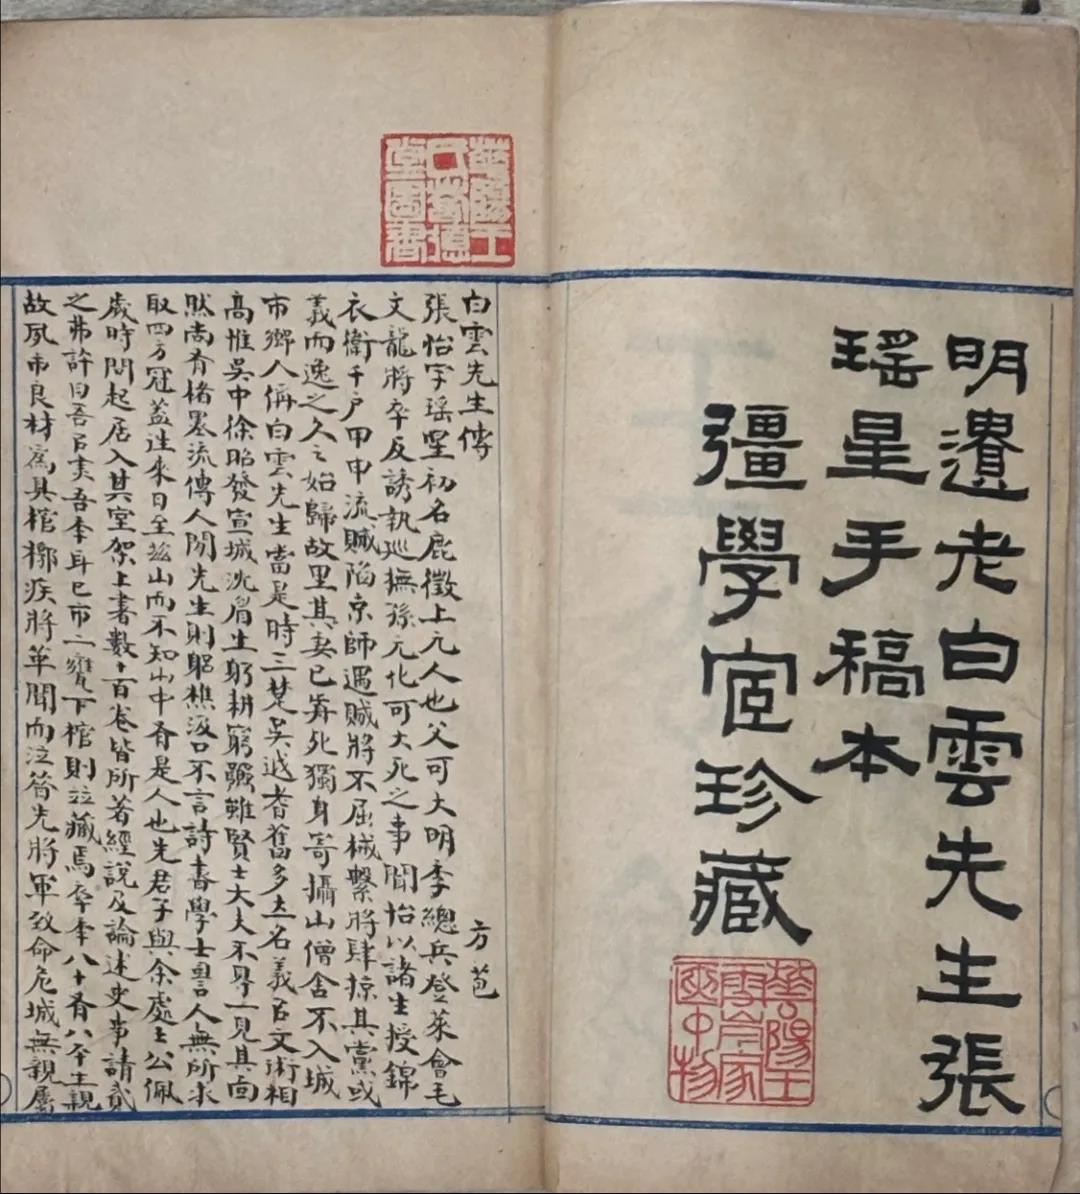 明遺老白雲先生張
瑶星手稿本
彊學宧珍藏
華陽王
雪岑家
匧中物
華陽王
氏德
堂圖書
白雲先生傳
方苞
張怡字瑶星初名鹿徵上元人也父可大明季總兵登萊會毛
文龍將卒反誘執巡撫孫元化可大死之事聞怡以諸生授錦
衣衛千户甲申流賊陷京師遇賊將不屈械繫將肆掠其黨或
義而逸之久之始歸故里其妻已歬死獨身寄攝山僧舍不入城
市鄉人偁白雲先生當是時三楚吳越耆舊多立名義㠯文術相
高惟吳中徐昭發宣城沈眉生躬耕窮雖賢士大夫不㝵一見其面
然尚有楮墨流傳人閒先生則躬樵汲口不言詩書學士詞人無所求
取四方冠蓋往來日至兹山而不知山中有是人也先君子與余處士公佩
歲時問起居入其室架上書數十百卷皆所著經說及論述史事請貳
之弗許曰吾㠯夷吾季耳已市二甕下棺則竝藏焉卒季八十有八平生親
故夙市良材爲具棺槨疾將革聞而泣先將軍致命危城無親屬